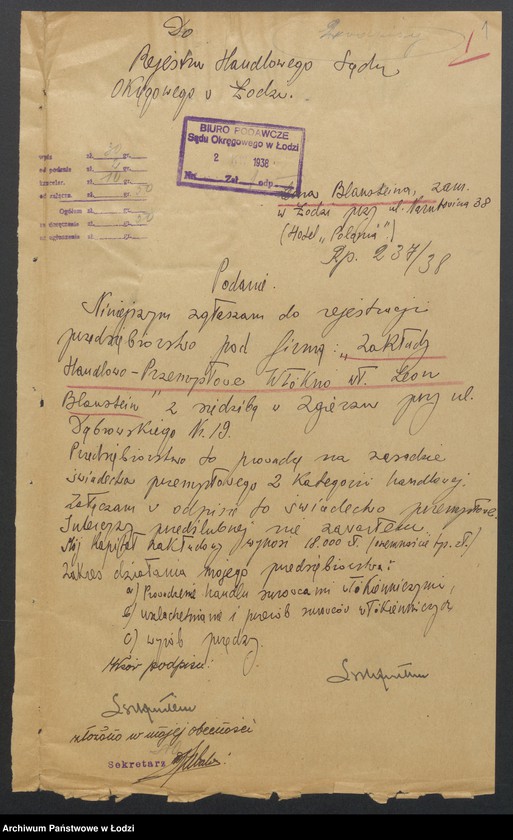 1
Do
Rejestru Handlowego Sądu
Okręgowego w Łodzi.
BIURO PODAWCZE
Sądu Okręgowego w Łodzi
2 1938
Nr. Zał. odp.
wpis zł. gr.
od podania zł. gr.
zł. gr.
od załącz. zł. gr.
Ogółem zł. gr.
za doręczenie zł. gr.
za ogłoszenie zł. gr.
Blawsteina, zam.
w Łodzi przy ul. Narutowicza 38
(Hotel „Polonia")
Rp. 237/38
Podanie.
Niniejszym zgłaszam do rejestracji
przedsiębiorstwo pod firmą: „Zakłady
Handlowo-Przemysłowe Włókno wł. Leon
Blawstein" z siedzibą w Zgierzu przy ul.
Dąbrowskiego Nr. 19.
Przedsiębiorstwo to prowadzę na zasadzie
świadectwa przemysłowego 2 kategorii handlowej.
Załączam w odpisie to świadectwo przemysłowe.
Intercyzy przedślubnej nie zawarłem.
Mój kapitał zakładowy wynosi 18.000 zł. (osiemnaście tys. zł.)
Zakres działania mojego przedsiębiorstwa:
a) Prowadzenie handlu surowcami włókienniczymi,
b) uszlachetnianie i przerób surowców włókienniczych
c) wyrób przędzy.
Wzór podpisu:
złożono w mojej obecności
Sekretarz
Archiwum Państwowe w Łodzi